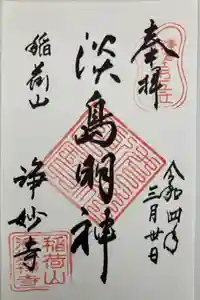 奉拝
令和四年
三月廿日
淡島明神
稲荷山
浄妙寺
稲荷山